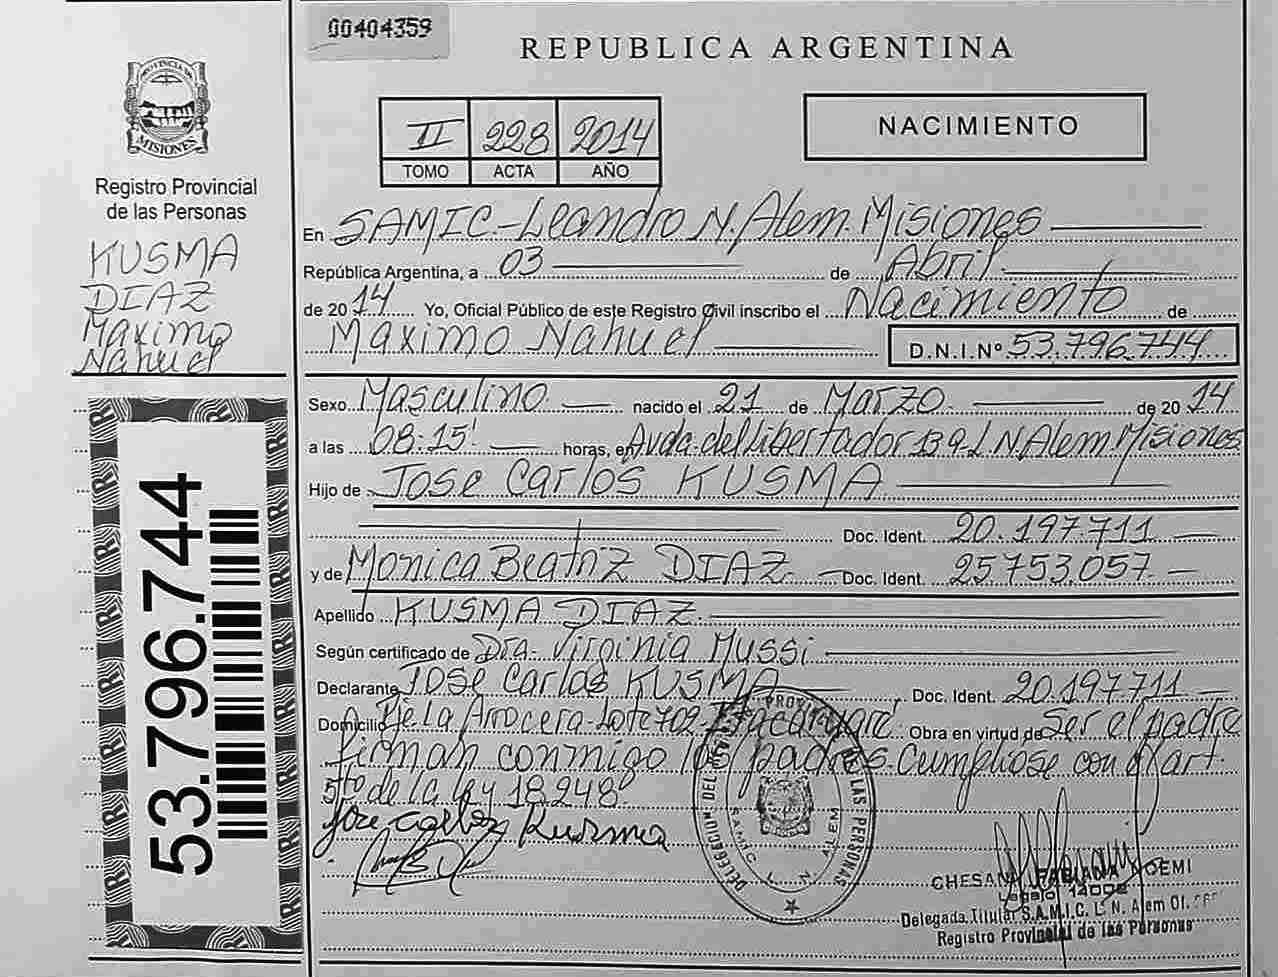 00404359
REPUBLICA ARGENTINA
PROVINCIA DE
MISIONES
Registro Provincial
de las Personas
KUSMA
DIAZ
Maximo
Nahuel
53.796.744
II 228 2014
TOMO ACTA AÑO
NACIMIENTO
En SAMIC.-Leandro N. Alem. Misiones
República Argentina, a 03 de Abril
de 2014 Yo, Oficial Público de este Registro Civil inscribo el Nacimiento de
Maximo Nahuel D.N.I.Nº 53.796.744
Sexo Masculino nacido el 21 de Marzo de 2014
a las 08:15' horas, en Avda. del Libertador L.N. Alem. Misiones
Hijo de Jose Carlos KUSMA
Doc. Ident. 20.197.711
y de Monica Beatriz DIAZ Doc. Ident. 25753.057
Apellido KUSMA DIAZ
Según certificado de Dra. Virginia Mussi
Declarante Jose Carlos KUSMA Doc. Ident. 20.197.711
Domicilio La Arrocera-Lote 709- Obra en virtud de Ser el padre
firman conmigo los padres. Cumpliose con el art.
5to de la ley 18.248.
Jose Carlos Kusma
DELEGACION DEL PROVINCIAL DE LAS PERSONAS
SAMIC L. N. ALEM
FABIANA NOEMI
Legajo
Delegada Titular S.A.M.I.C. L. N. Alem
Registro Provincial de las Personas